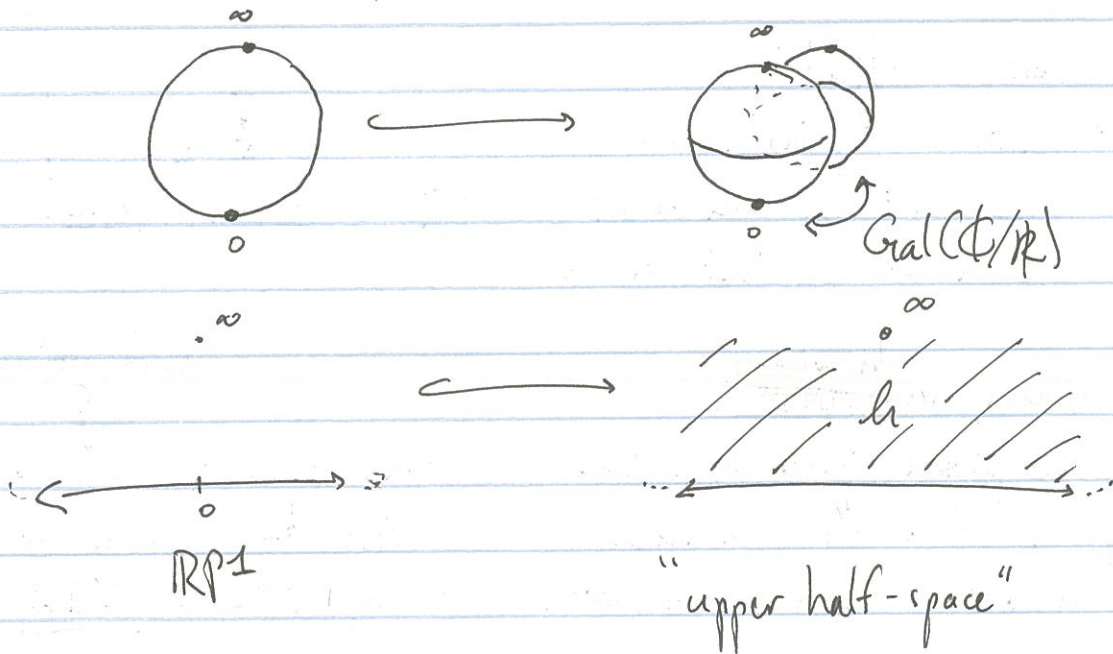 ∞ ∞
0 0
Gal(ℂ/ℝ)
∞ ∞
h
0
RP1
"upper half-space"